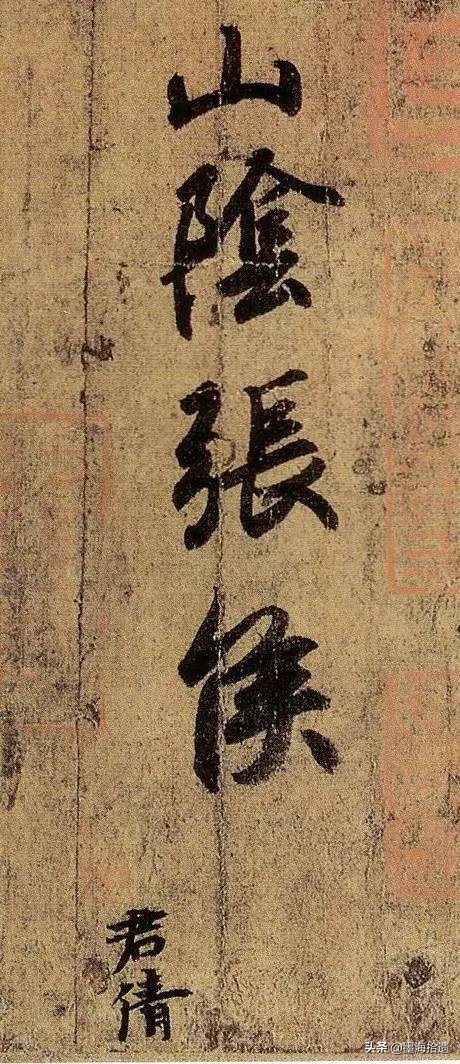 山陰張侯
君倩
头条 @墨海拾遗